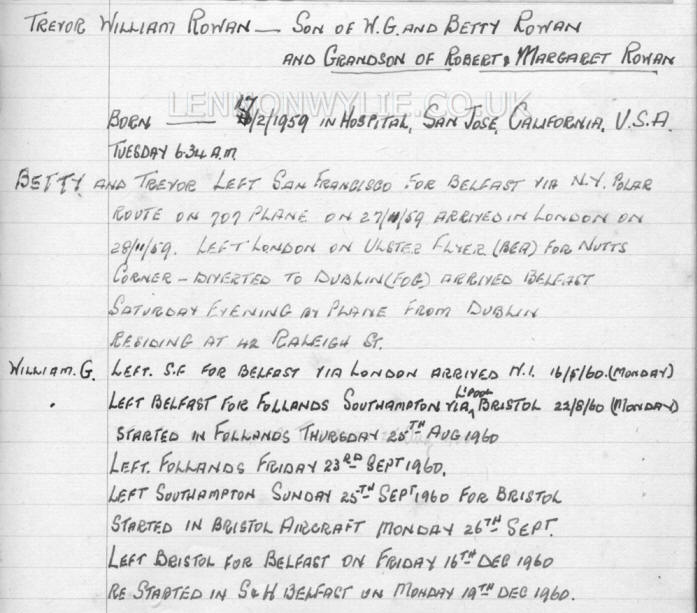 TREVOR WILLIAM ROWAN — SON OF W.G. AND BETTY ROWAN
AND GRANDSON OF ROBERT & MARGARET ROWAN
LENNONWYLIE.CO.UK
BORN — 17/2/1959 IN HOSPITAL, SAN JOSE, CALIFORNIA, U.S.A.
TUESDAY 6.34 A.M.
BETTY AND TREVOR LEFT SAN FRANCISCO FOR BELFAST VIA N.Y. POLAR
ROUTE ON 707 PLANE ON 27/11/59 ARRIVED IN LONDON ON
28/11/59. LEFT LONDON ON ULSTER FLYER (BEA) FOR NUTTS
CORNER – DIVERTED TO DUBLIN (FOG) ARRIVED BELFAST
SATURDAY EVENING BY PLANE FROM DUBLIN
RESIDING AT 42 RALEIGH ST.
WILLIAM. G. LEFT. S.F FOR BELFAST VIA LONDON ARRIVED N.I. 16/5/60. (MONDAY)
LEFT BELFAST FOR FOLLANDS SOUTHAMPTON VIA L'POOL BRISTOL 22/8/60 (MONDAY)
STARTED IN FOLLANDS THURSDAY 25TH AUG 1960
LEFT. FOLLANDS FRIDAY 23RD SEPT 1960.
LEFT SOUTHAMPTON SUNDAY 25TH SEPT 1960 FOR BRISTOL
STARTED IN BRISTOL AIRCRAFT MONDAY 26TH SEPT.
LEFT BRISTOL FOR BELFAST ON FRIDAY 16TH DEC 1960
RE STARTED IN S&H BELFAST ON MONDAY 19TH DEC 1960.